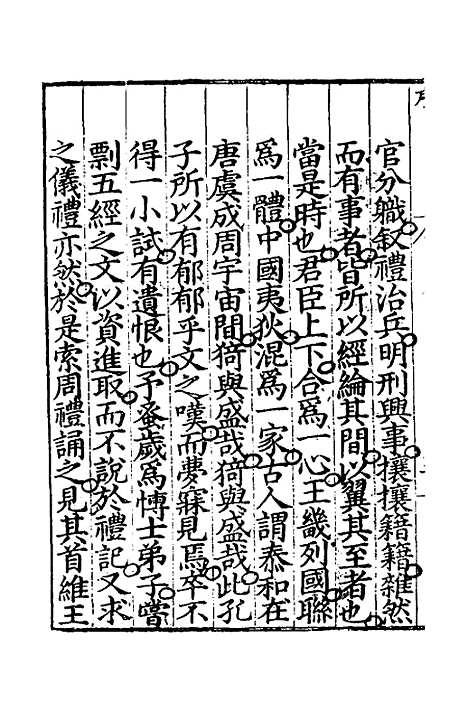 官分軄叙禮治兵明刑興事攘攘籍籍雜然
而有事者皆所以經綸其間以翼其至者也
當是時也君臣上下合爲一心王畿列國聯
爲一體中國夷狄混爲一家古人謂泰和在
唐虞成周宇宙間猗與盛哉猗與盛哉此孔
子所以有郁郁乎文之嘆而夢寐見焉卒不
得一小試有遺恨也予蚤歲爲博士弟子嘗
剽五經之文以資進取而不說於禮記又求
之儀禮亦然於是索周禮誦之見其首維王